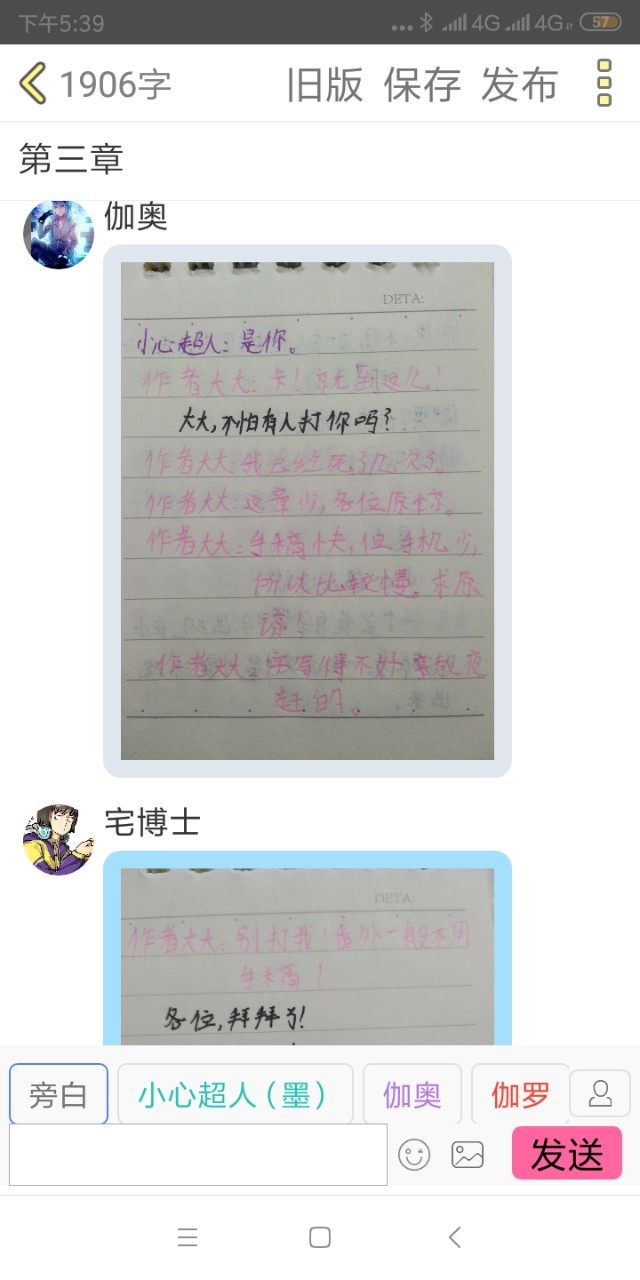 下午5:39
4G
4G
57
1906字
旧版
保存
发布
第三章
伽奥
DETA:
小心超人：是你。
作者大大：卡！就到这儿！
大大，不怕有人打你吗？
作者大大：我已经死了几次了。
作者大大：这章少，各位原惊。
作者大大：手稿快，但手机少，
所以比较慢。求原
谅！
作者大大：字写得不好，熬夜
赶的。
宅博士
DETA:
作者大大：别打我！番外一般不用
手稿！
各位，拜拜了！
旁白
小心超人（墨）
伽奥
伽罗
发送